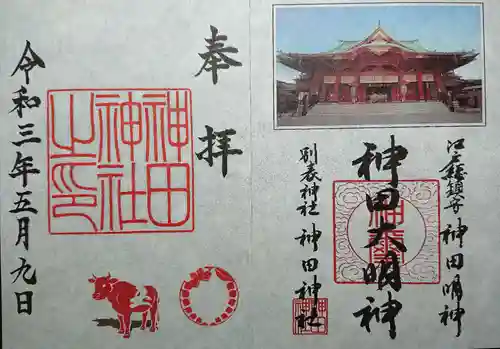 江戸總鎮守 神田明神
神田大明神
別表神社 神田神社
奉拝
神田
神社
之印
令和三年五月九日